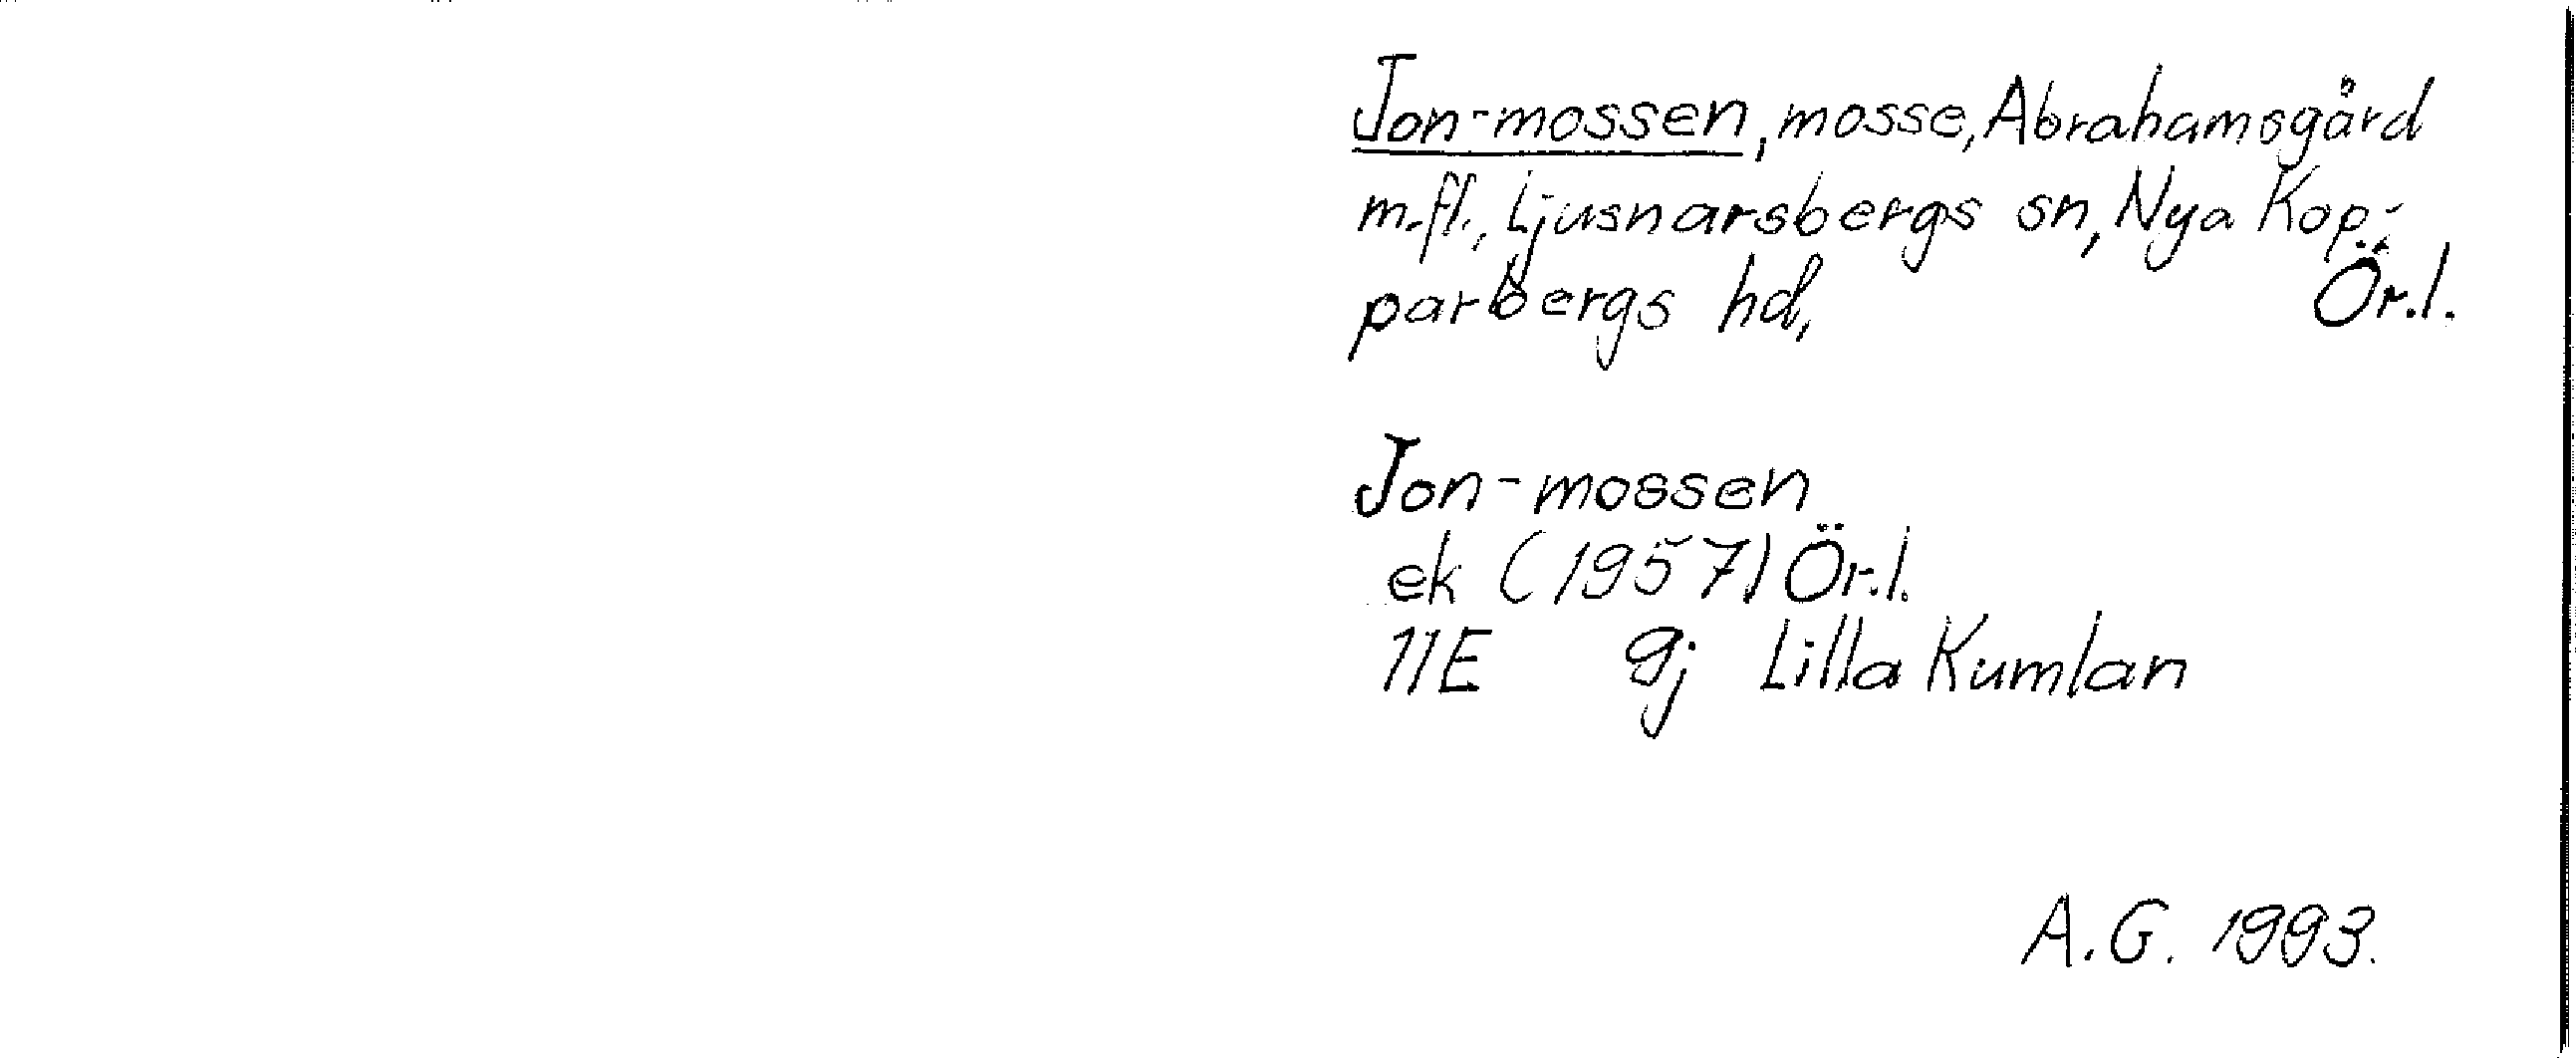 Jon-mossen, mosse, Abrahamsgård
m.fl., Ljusnarsbergs sn, Nya Kop-
parbergs hd, Ör.l.
Jon-mossen
ek (1957) Ör.l.
11E 9j Lilla Kumlan
A.G. 1993.